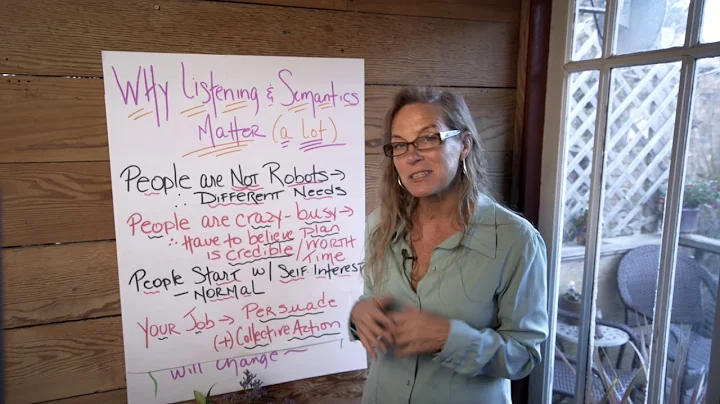 Why Listening & Semantics
Matter (a lot)
People are Not Robots →
∴ Different Needs
People are crazy-busy →
∴ Have to believe Plan
is credible / Worth
Time
People Start w/ Self Interest
– Normal
Your Job → Persuade
(+) Collective Action
will change ~